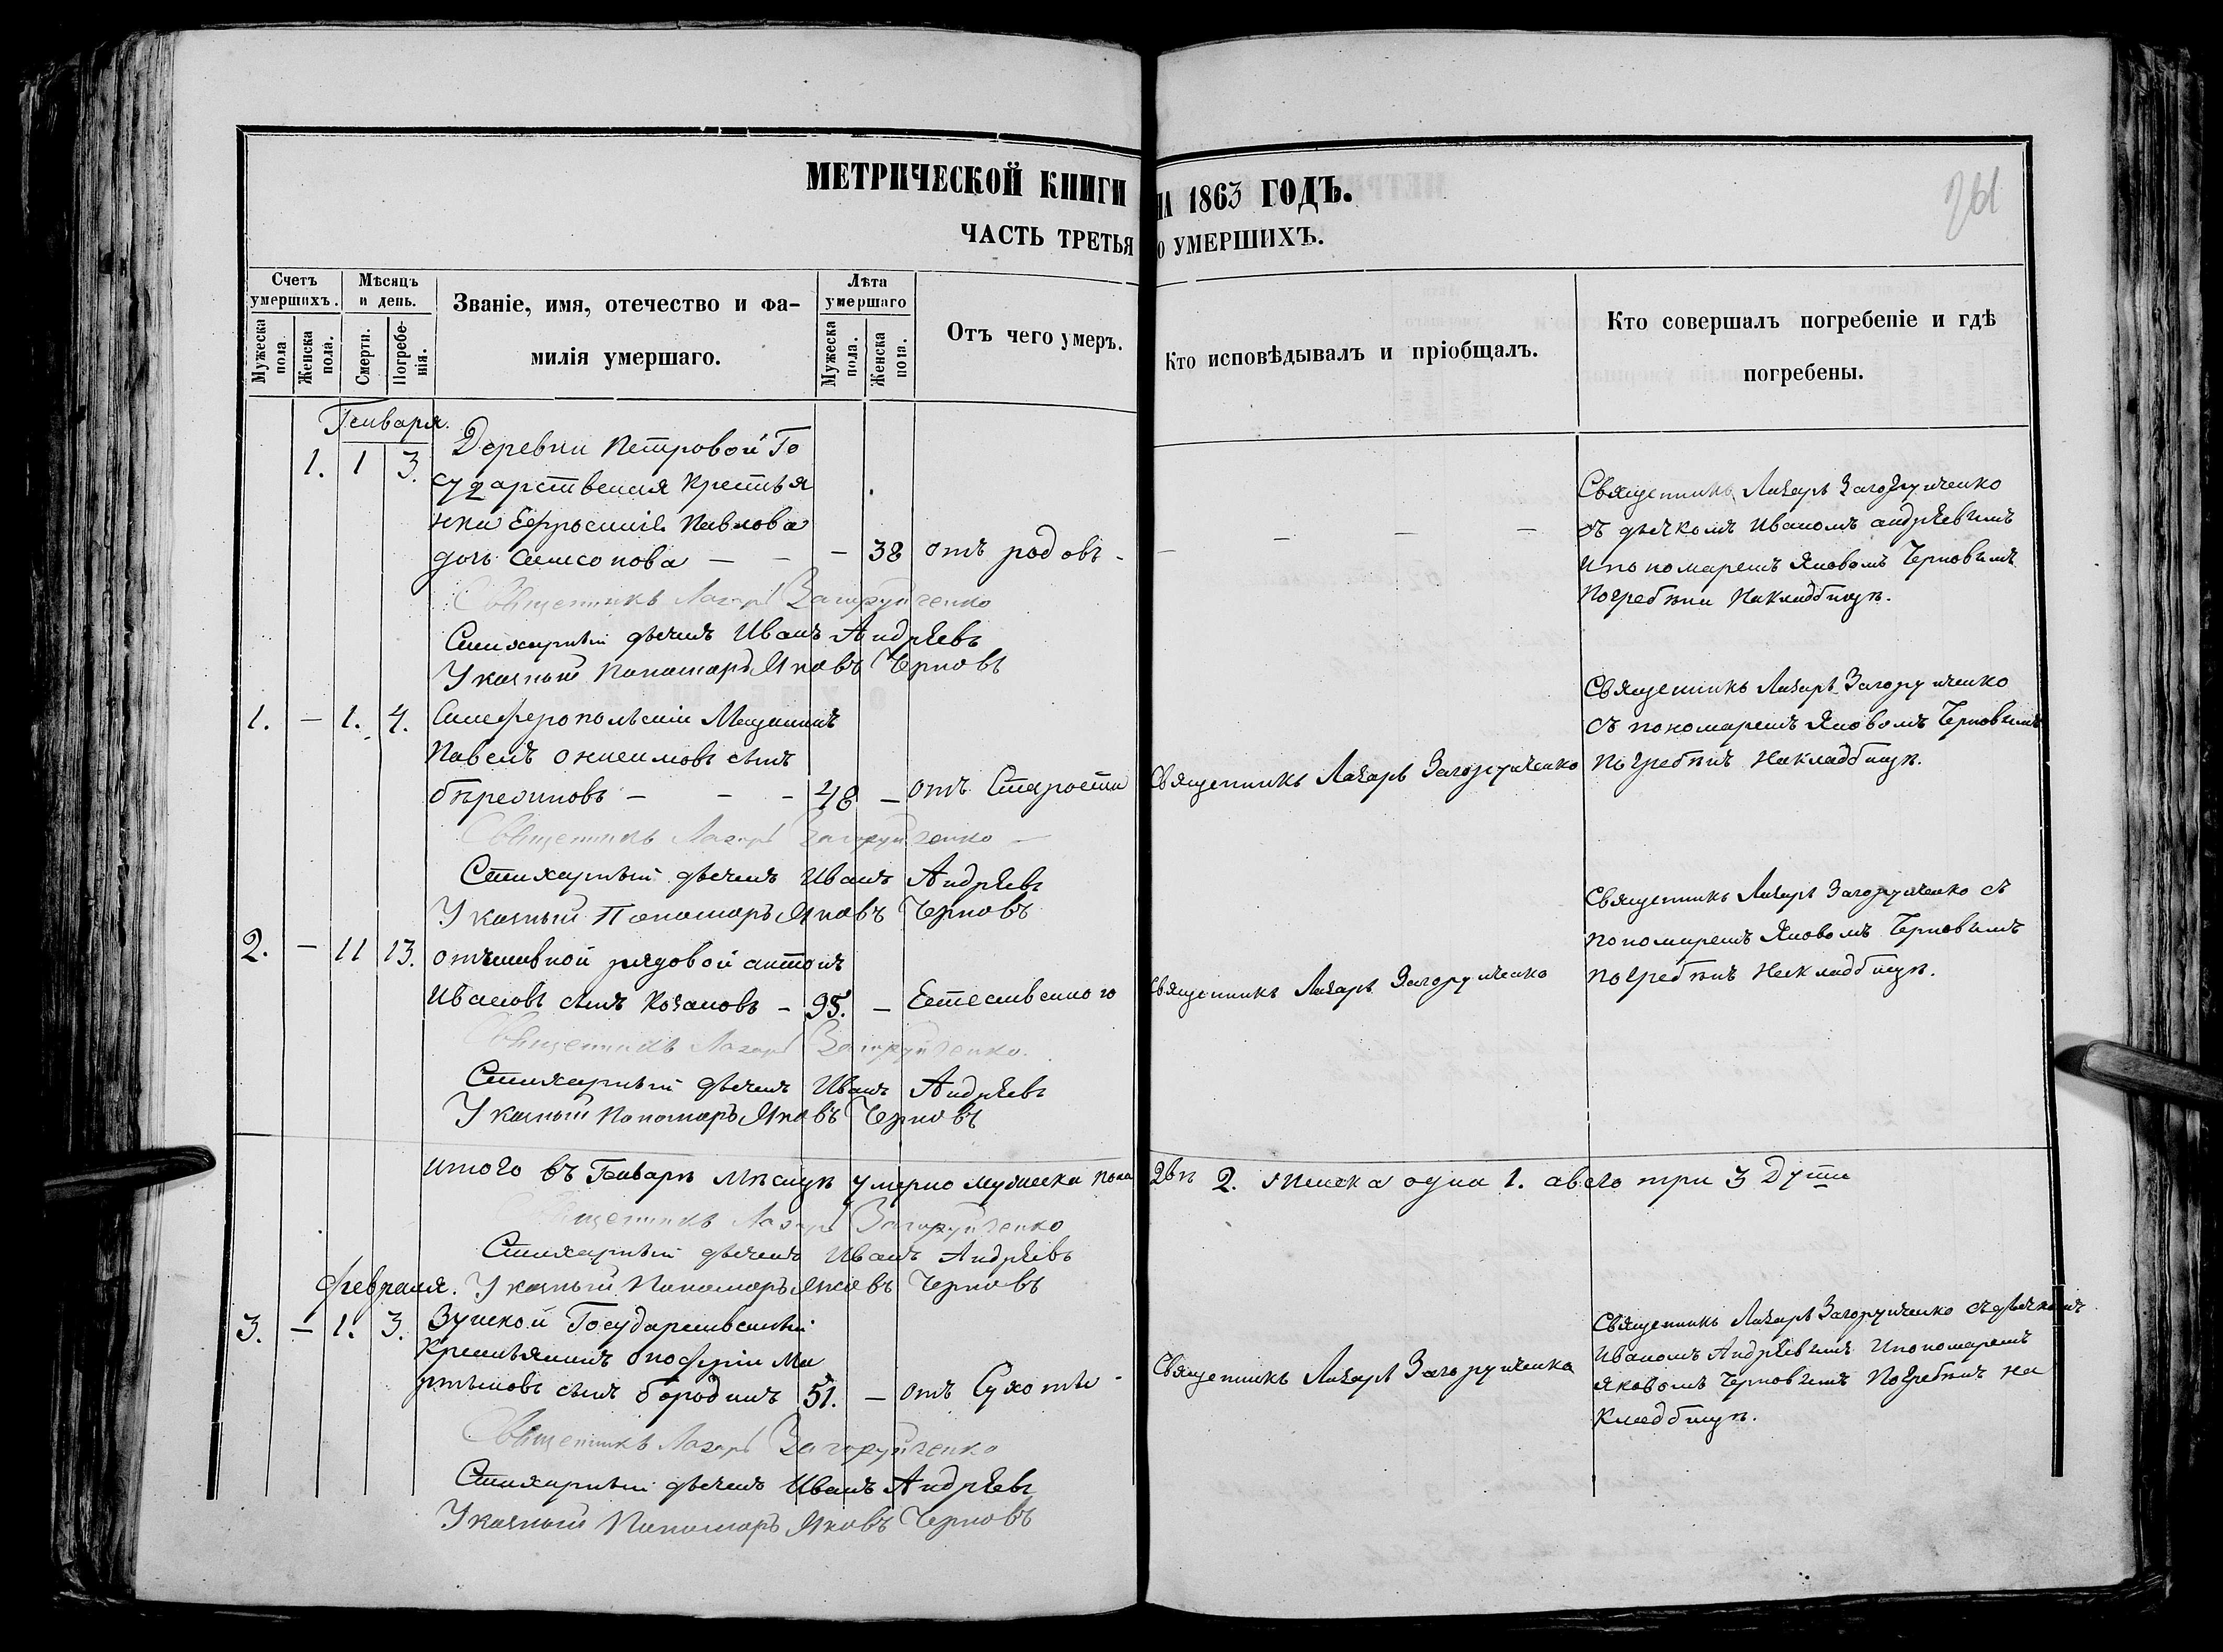 МЕТРИЧЕСКОЙ КНИГИ НА 1863 ГОДЪ.
261
ЧАСТЬ ТРЕТЬЯ О УМЕРШИХЪ.
Счетъ умершихъ.
Мужеска пола
Женска пола.
Мѣсяцъ и день.
Смерти.
Погребенія.
Званіе, имя, отечество и фамилія умершаго.
Лѣта умершаго
Мужеска пола.
Женска пола.
Отъ чего умеръ.
Кто исповѣдывалъ и пріобщалъ.
Кто совершалъ погребеніе и гдѣ погребены.
Генваря.
1. 1 3. Деревни Петровой Го
сударственая Крестья
нка Ефросинія Павлова
дочь Самсонова — — — 38 отъ родовъ - — — — —
Священникъ Лазарь Загоруйченко
съ дьячкомъ Иваномъ андрѣевымъ
и пономаремъ Яковомъ Черновымъ
Погребѣна На кладбищѣ.
Священникъ Лазарь Загоруйченко
Стихарный дьячекъ Иванъ Андрѣевъ
Указный Пономарь Яковъ Черновъ
1. — 1. 4. Симферопольскій Мещанинъ
Павелъ Онисимовъ сынъ
бѣрезиновъ — — — 48 — отъ Старости
Священникъ Лазарь Загоруйченко
Священникъ Лазарь Загоруйченко
съ пономаремъ Яковомъ Черновымъ
Погребѣнъ На кладбищѣ.
Священникъ Лазарь Загоруйченко —
Стихарный дьячекъ Иванъ Андрѣевъ
Указный Пономарь Яковъ Черновъ
2. — 11 13. отставной рядовой антонъ
Ивановъ сынъ Козановъ — 95. — Естественного
Священникъ Лазарь Загоруйченко
Священникъ Лазарь Загоруйченко съ
пономаремъ Яковомъ Черновымъ
погребѣнъ На кладбищѣ.
Священникъ Лазарь Загоруйченко.
Стихарный дьячекъ Иванъ Андрѣевъ
Указный Пономарь Яковъ Черновъ
итого въ Генварѣ Мѣсяцѣ умерло мужеска пола двѣ 2. женска одна 1. а всего три 3 Души
Священникъ Лазарь Загоруйченко
Стихарный дьячекъ Иванъ Андрѣевъ
Февраля. Указный Пономарь Яковъ Черновъ
3. — 1. 3. Зуйской Государственный
Крестьянинъ Онофрій Ма
ртыновъ сынъ бородинъ 51. — отъ Сухоты -
Священникъ Лазарь Загоруйченко
Священникъ Лазарь Загоруйченко съ дьячкомъ
Иваномъ Андрѣевымъ и пономаремъ
Яковомъ Черновымъ Погребѣнъ на
Кладбищѣ.
Священникъ Лазарь Загоруйченко
Стихарный дьячекъ Иванъ Андрѣевъ
Указный Пономарь Яковъ Черновъ